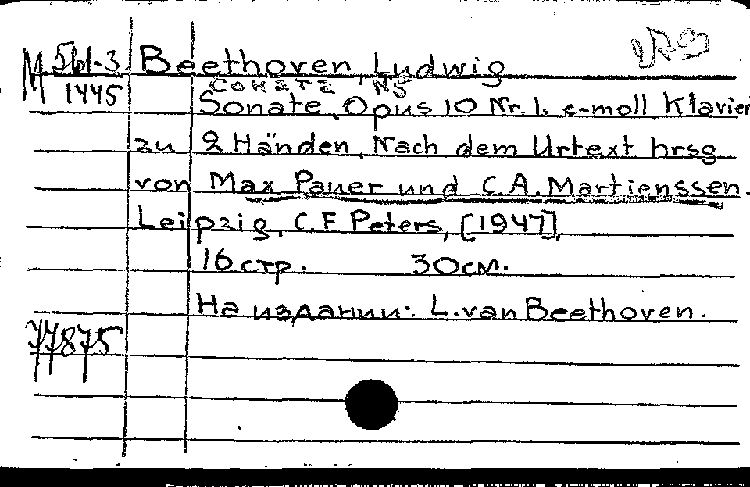 M 561-3 Beethoven, Ludwig
1445
Sonate, Opus 10 Nr. 1. c-moll Klavier
zu 2 Händen, Nach dem Urtext hrsg
von Max Pauer und C.A. Martienssen.
Leipzig, C.F. Peters, [1947].
16 стр. 30 см.
На издании: L. van Beethoven.
77875